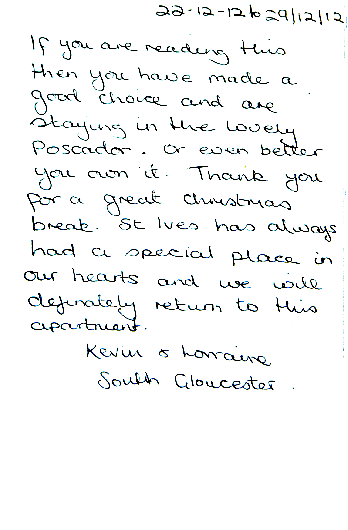 22-12-12 to 29/12/12
If you are reading this
then you have made a
good choice and are
staying in the lovely
Poscador. Or even better
you own it. Thank you
for a great christmas
break. St Ives has always
had a special place in
our hearts and we will
definately return to this
apartment.
Kevin & Lorraine
South Gloucester.